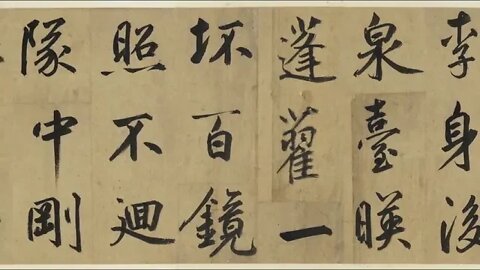 李身後
泉臺暎
蓬藋一
坏百鏡
照不迴
隊中剛